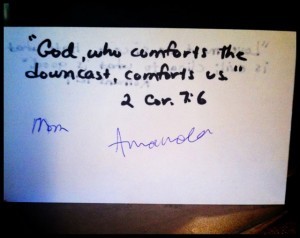 "God, who comforts the
downcast, comforts us"
2 Cor. 7:6
Mom
Amanda